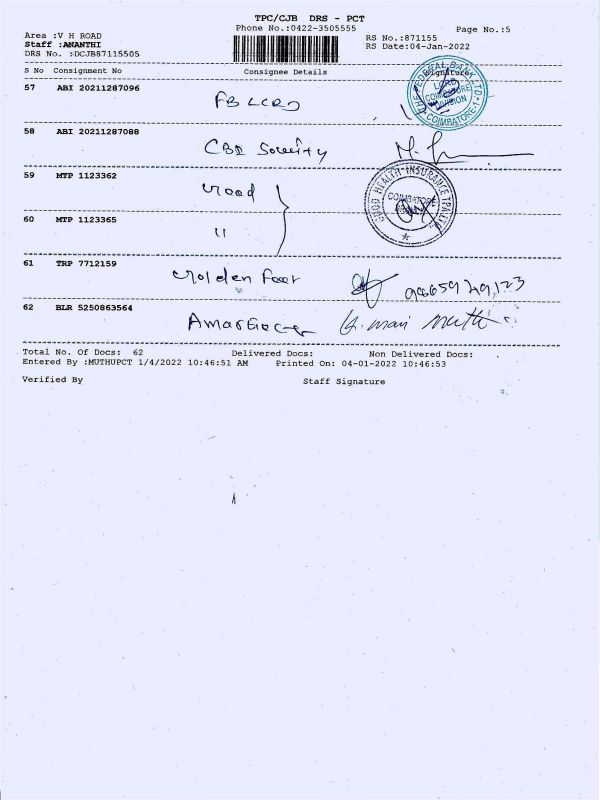 TPC/CJB DRS - PCT
Phone No.:0422-3505555
Page No.:5
Area :V H ROAD
RS No.:871155
Staff :ANANTHI
RS Date:04-Jan-2022
DRS No. :DCJB87115505
S No Consignment No Consignee Details Signature
57 ABI 20211287096
THE FEDERAL BANK LTD.
COIMBATORE
DIVISION
COIMBATORE
58 ABI 20211287088
59 MTP 1123362
HEALTH INSURANCE
COIMBATORE
60 MTP 1123365
"
61 TRP 7712159 Golden Foot
62 BLR 5250863564
Total No. Of Docs: 62 Delivered Docs: Non Delivered Docs:
Entered By :MUTHUPCT 1/4/2022 10:46:51 AM Printed On: 04-01-2022 10:46:53
Verified By Staff Signature